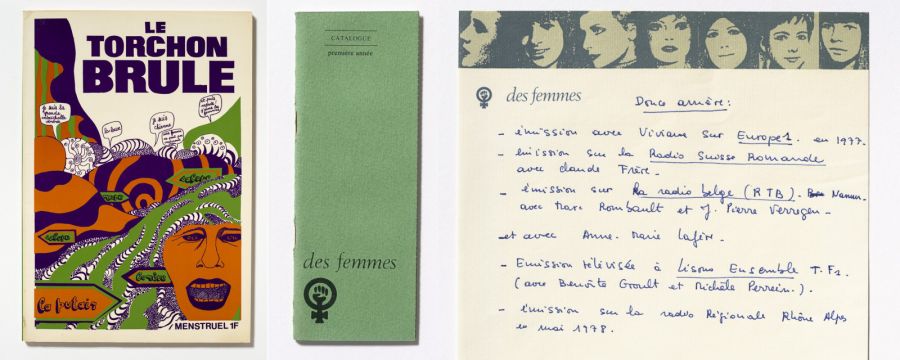 LE
TORCHON
BRULE
je suis la
grande
je suis
chienne
salope
salope
la police
la putain
MENSTRUEL 1F
CATALOGUE
première année
des femmes
des femmes
Douce arrière :
- émission avec Viviane sur Europe 1. en 1977.
- émission sur la Radio Suisse Romande
avec Claude Frère -
- émission sur la radio belge (RTB). Namur -
avec Marc Rombault et J. Pierre Verregen -
- et avec Anne-Marie Lafère.
- Emission télévisée à Lisons Ensemble T.F1.
(avec Benoîte Groult et Michèle Perrein.).
- émission sur la radio Régionale Rhône Alps
en mai 1978.